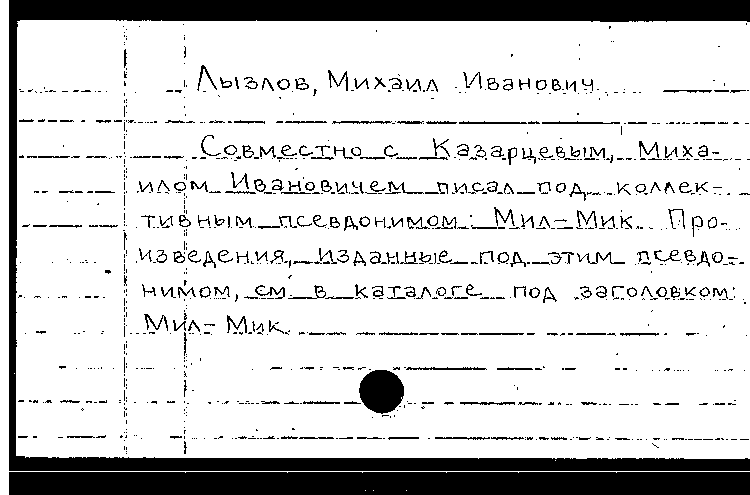 Лызлов, Михаил Иванович
Совместно с Казарцевым, Миха-
илом Ивановичем писал под коллек-
тивным псевдонимом: Мил-Мик. Про-
изведения, изданные под этим псевдо-
нимом, см. в каталоге под заголовком:
Мил-Мик.